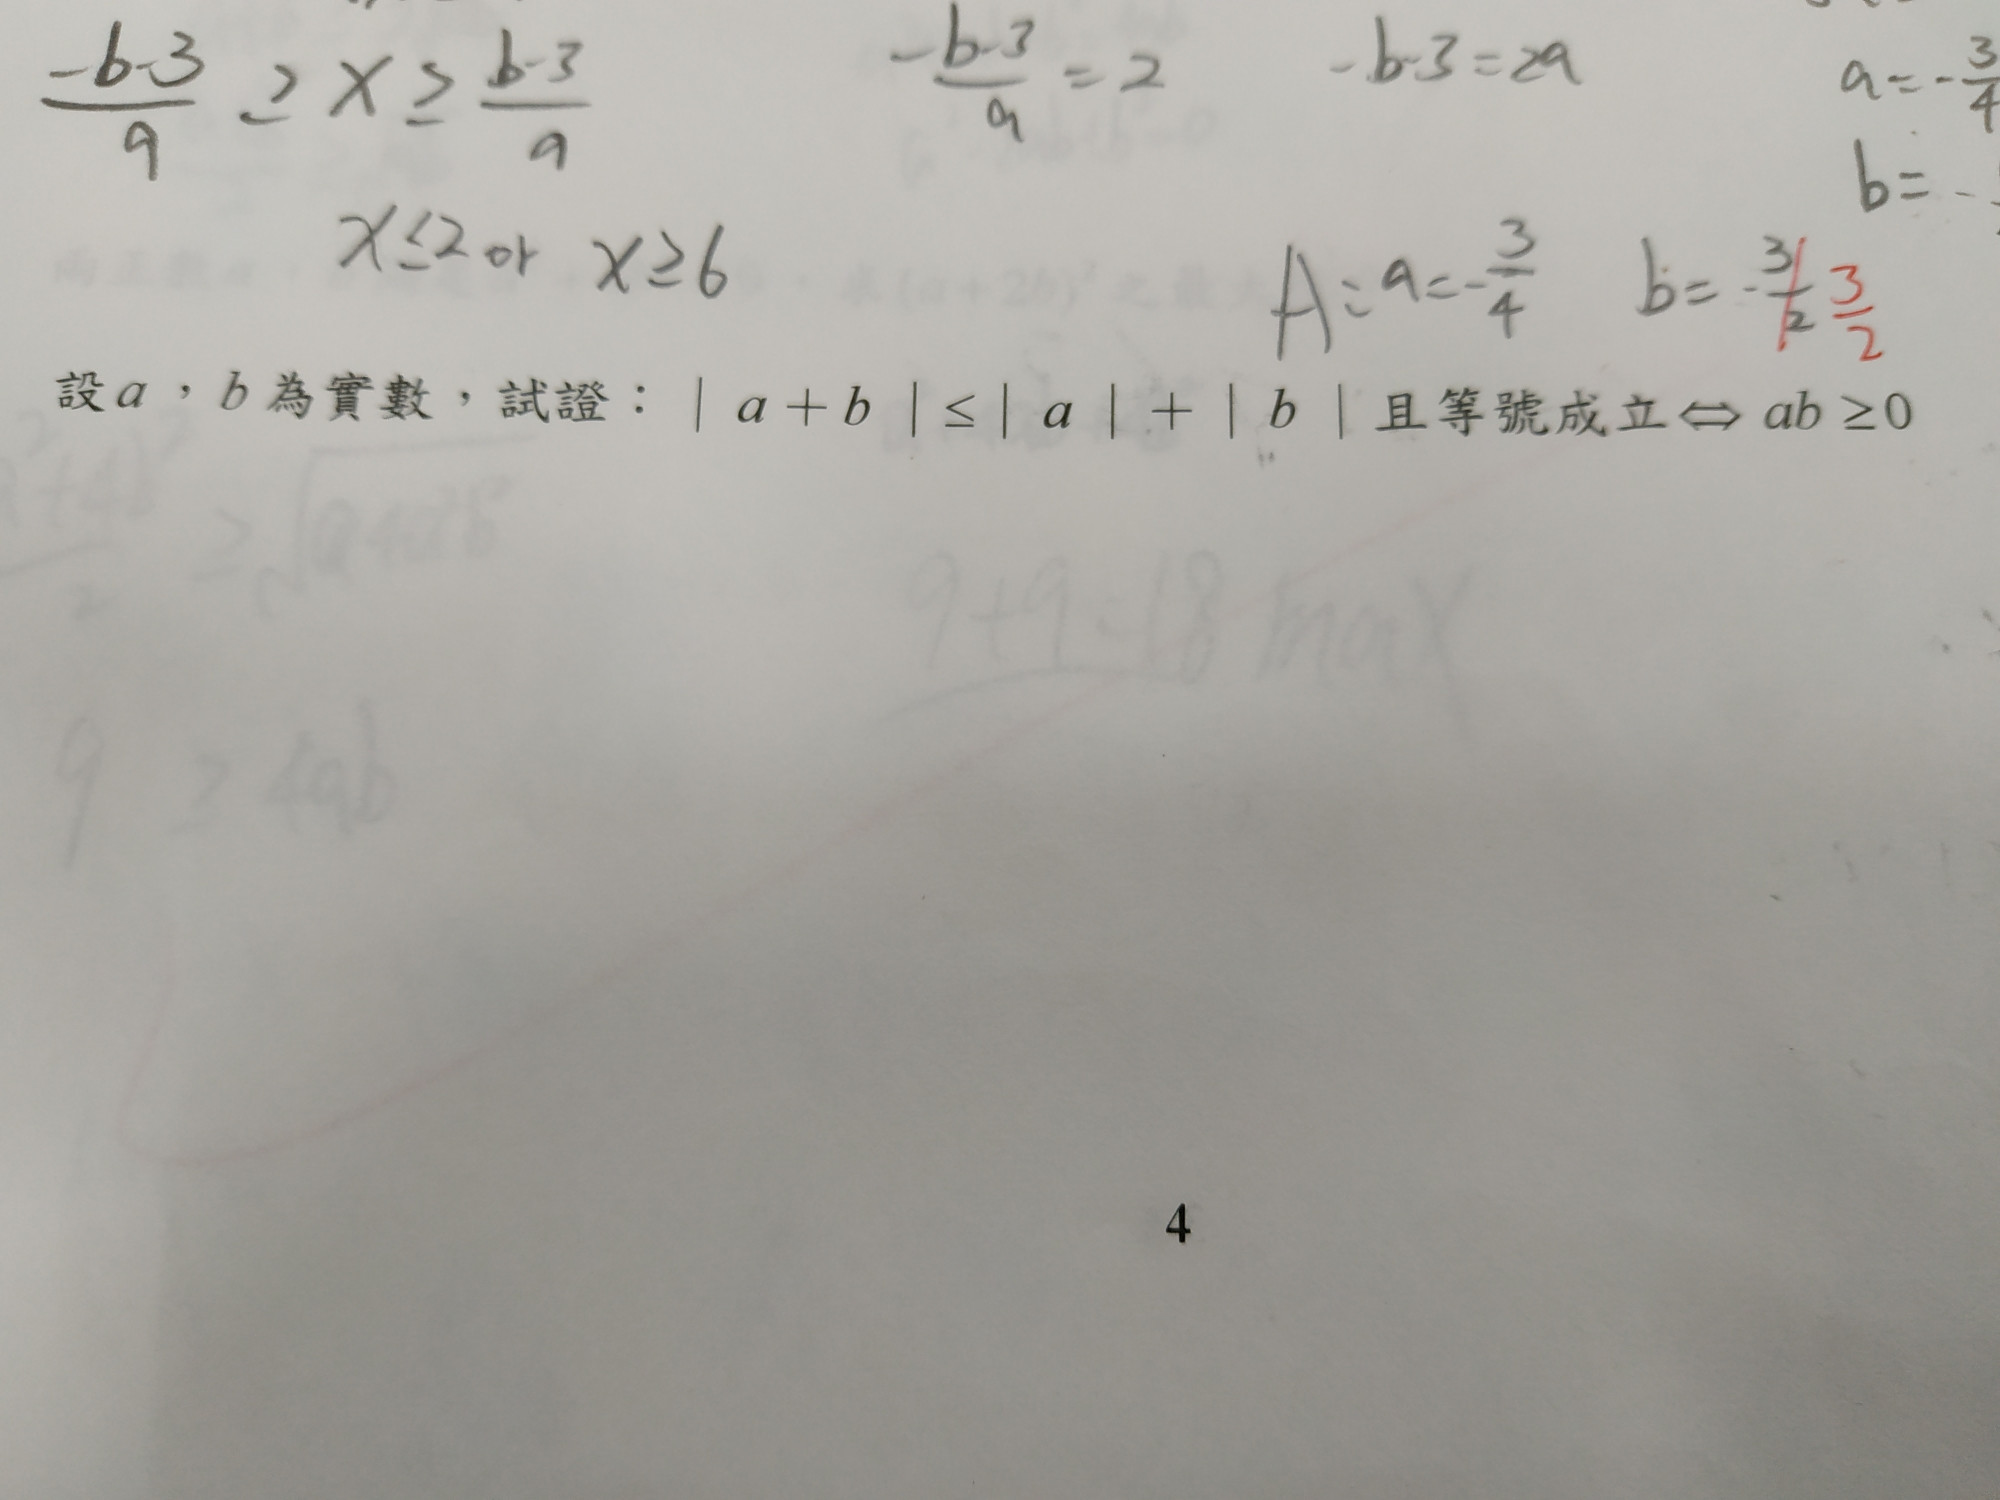 -b-3/a ≥ x ≥ b-3/a    -b-3/a = 2    -b-3=2a    a=-3/4
b= -
x≤2 or x≥6    A:a=-3/4    b=-3/2 3/2
設a，b為實數，試證：| a+b |≤| a |+| b |且等號成立⇔ ab ≥0
9+9=18 max
9 ≥ 4ab
4